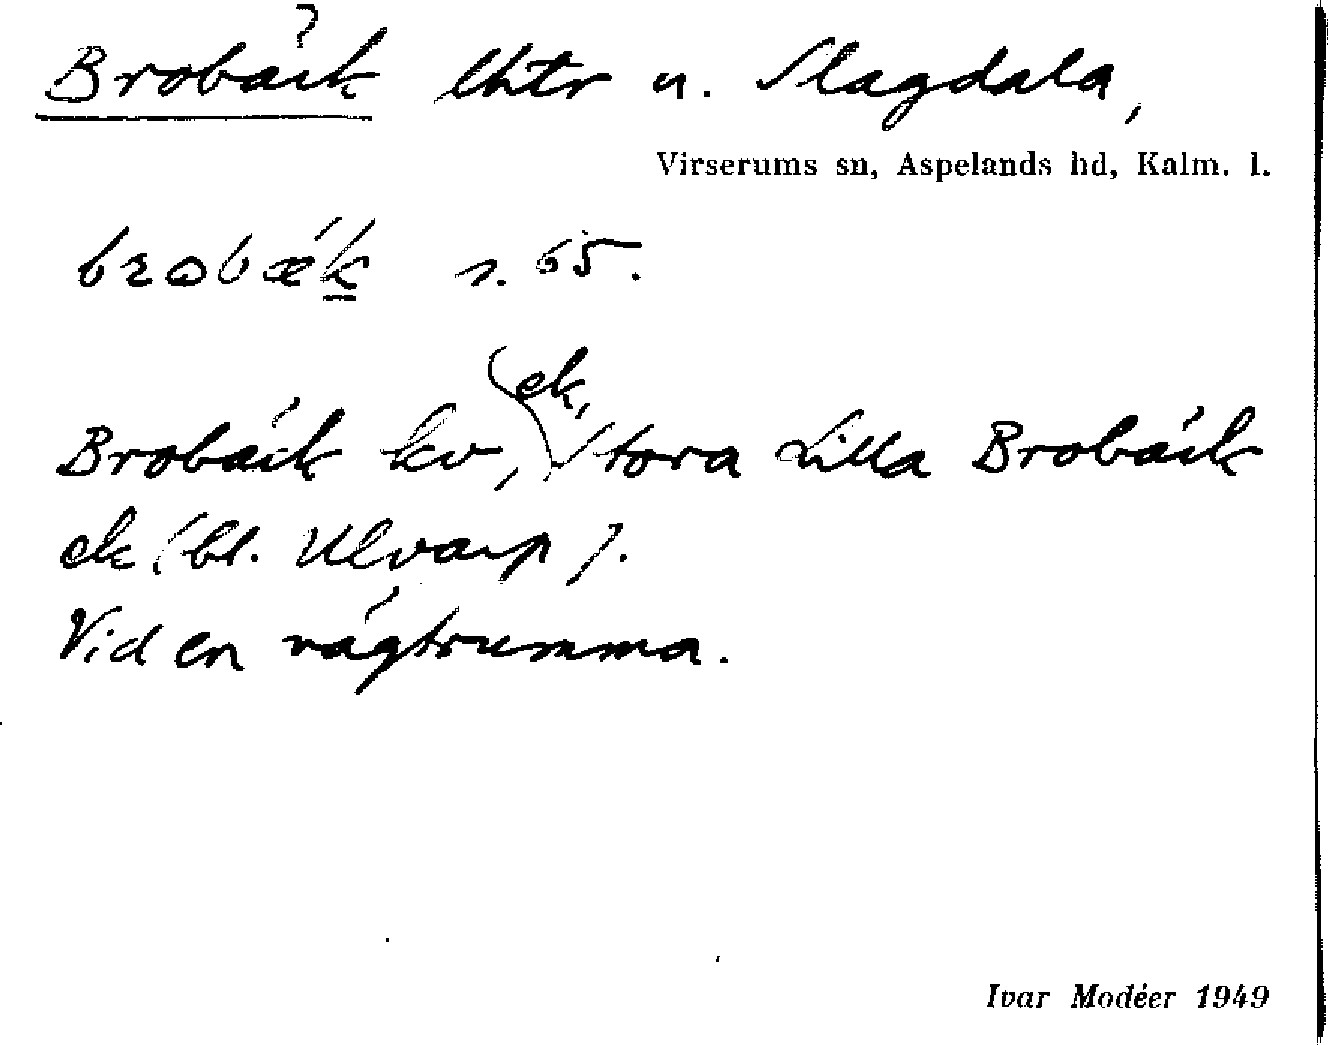 Brobäck lhtr u. Slagdala,
Virserums sn, Aspelands hd, Kalm. l.
brobæk s. 65.
Brobäck kv, ek, Stora Lilla Brobäck
ek (bl. Ulvarp).
Vid en vägtrumma.
Ivar Modéer 1949